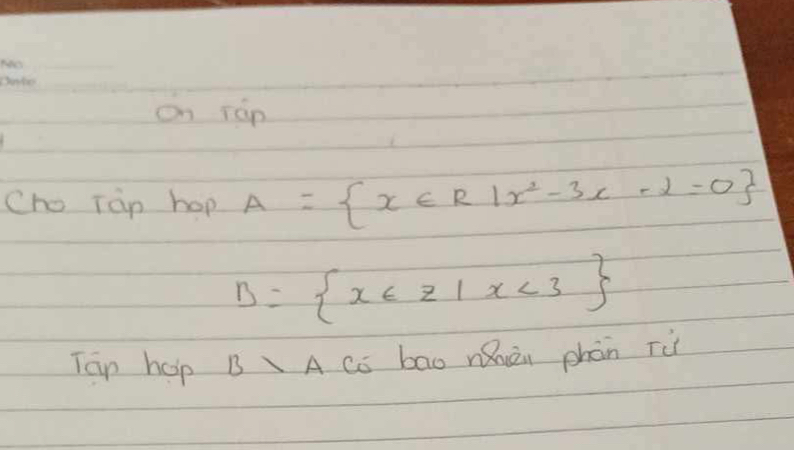 No
Date
Ôn Tập
Cho Tập hợp A = { x ∈ R | x² - 3x - 2 = 0}
B = { x ∈ Z | x < 3 }
Tập hợp B \ A có bao nhiêu phần Tử